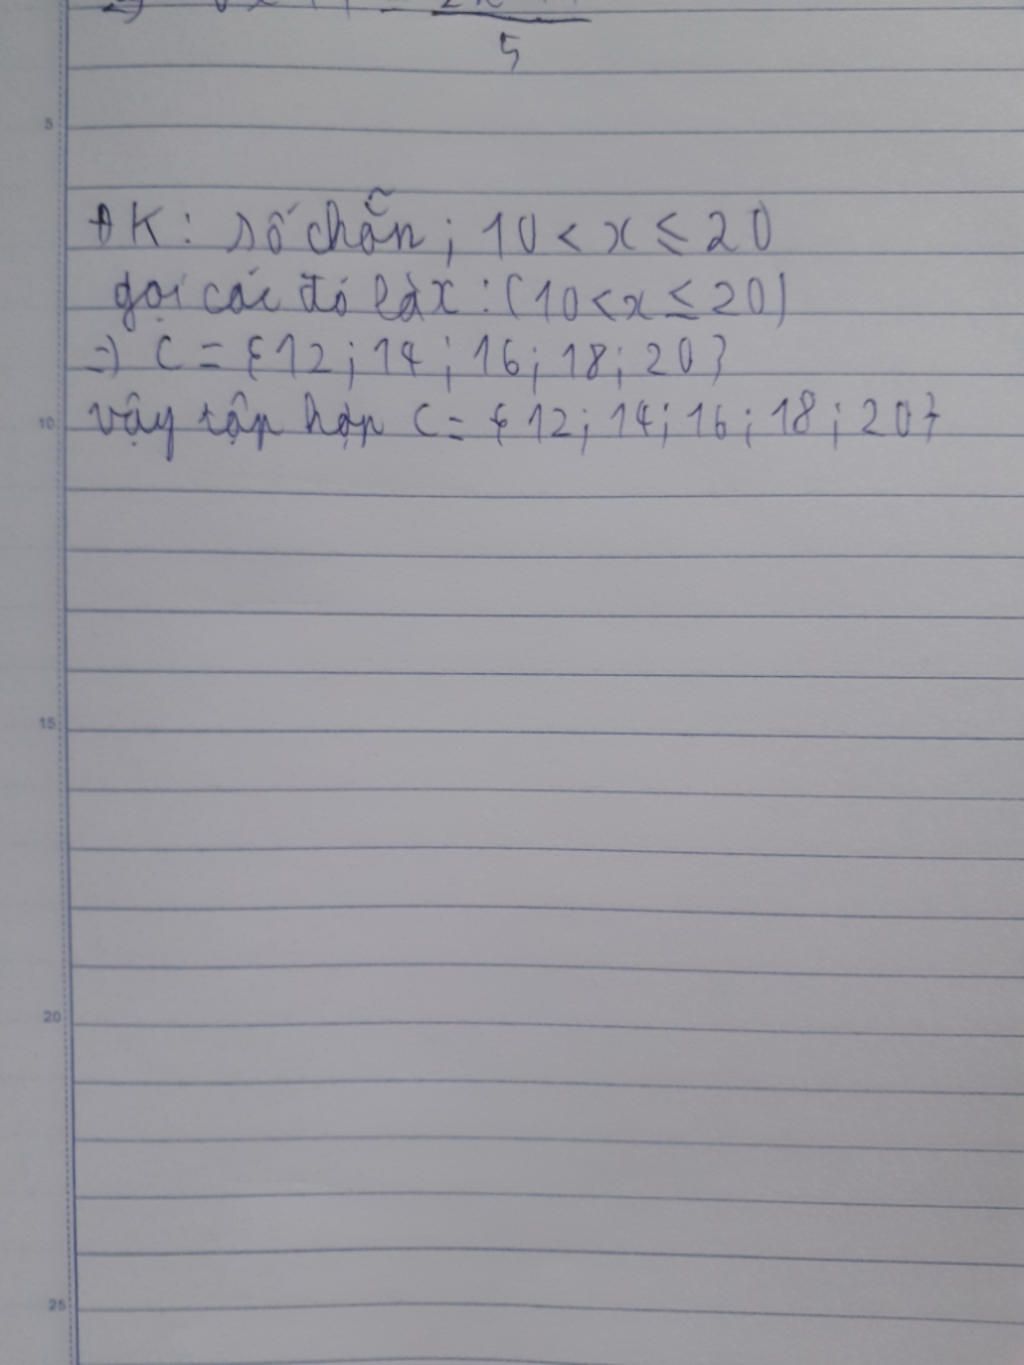 5
5
ĐK: số chẵn; 10 < x ≤ 20
gọi các đó là x : (10 < x ≤ 20)
=> C = {12; 14; 16; 18; 20}
10
vậy tập hợp C = {12; 14; 16; 18; 20}
15
20
25